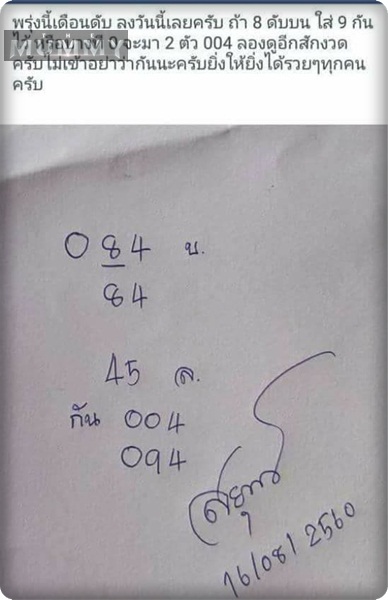 พรุ่งนี้เดือนดับ ลงวันนี้เลยครับ ถ้า 8 ดับบน ใส่ 9 กัน
ไว้ หรือบางที 0 จะมา 2 ตัว 004 ลองดูอีกสักงวด
ครับไม่เข้าอย่าว่ากันนะครับยิ่งให้ยิ่งได้รวยๆทุกคน
ครับ
084 บ.
84
45 ล.
กัน 004
094
16/08/2560